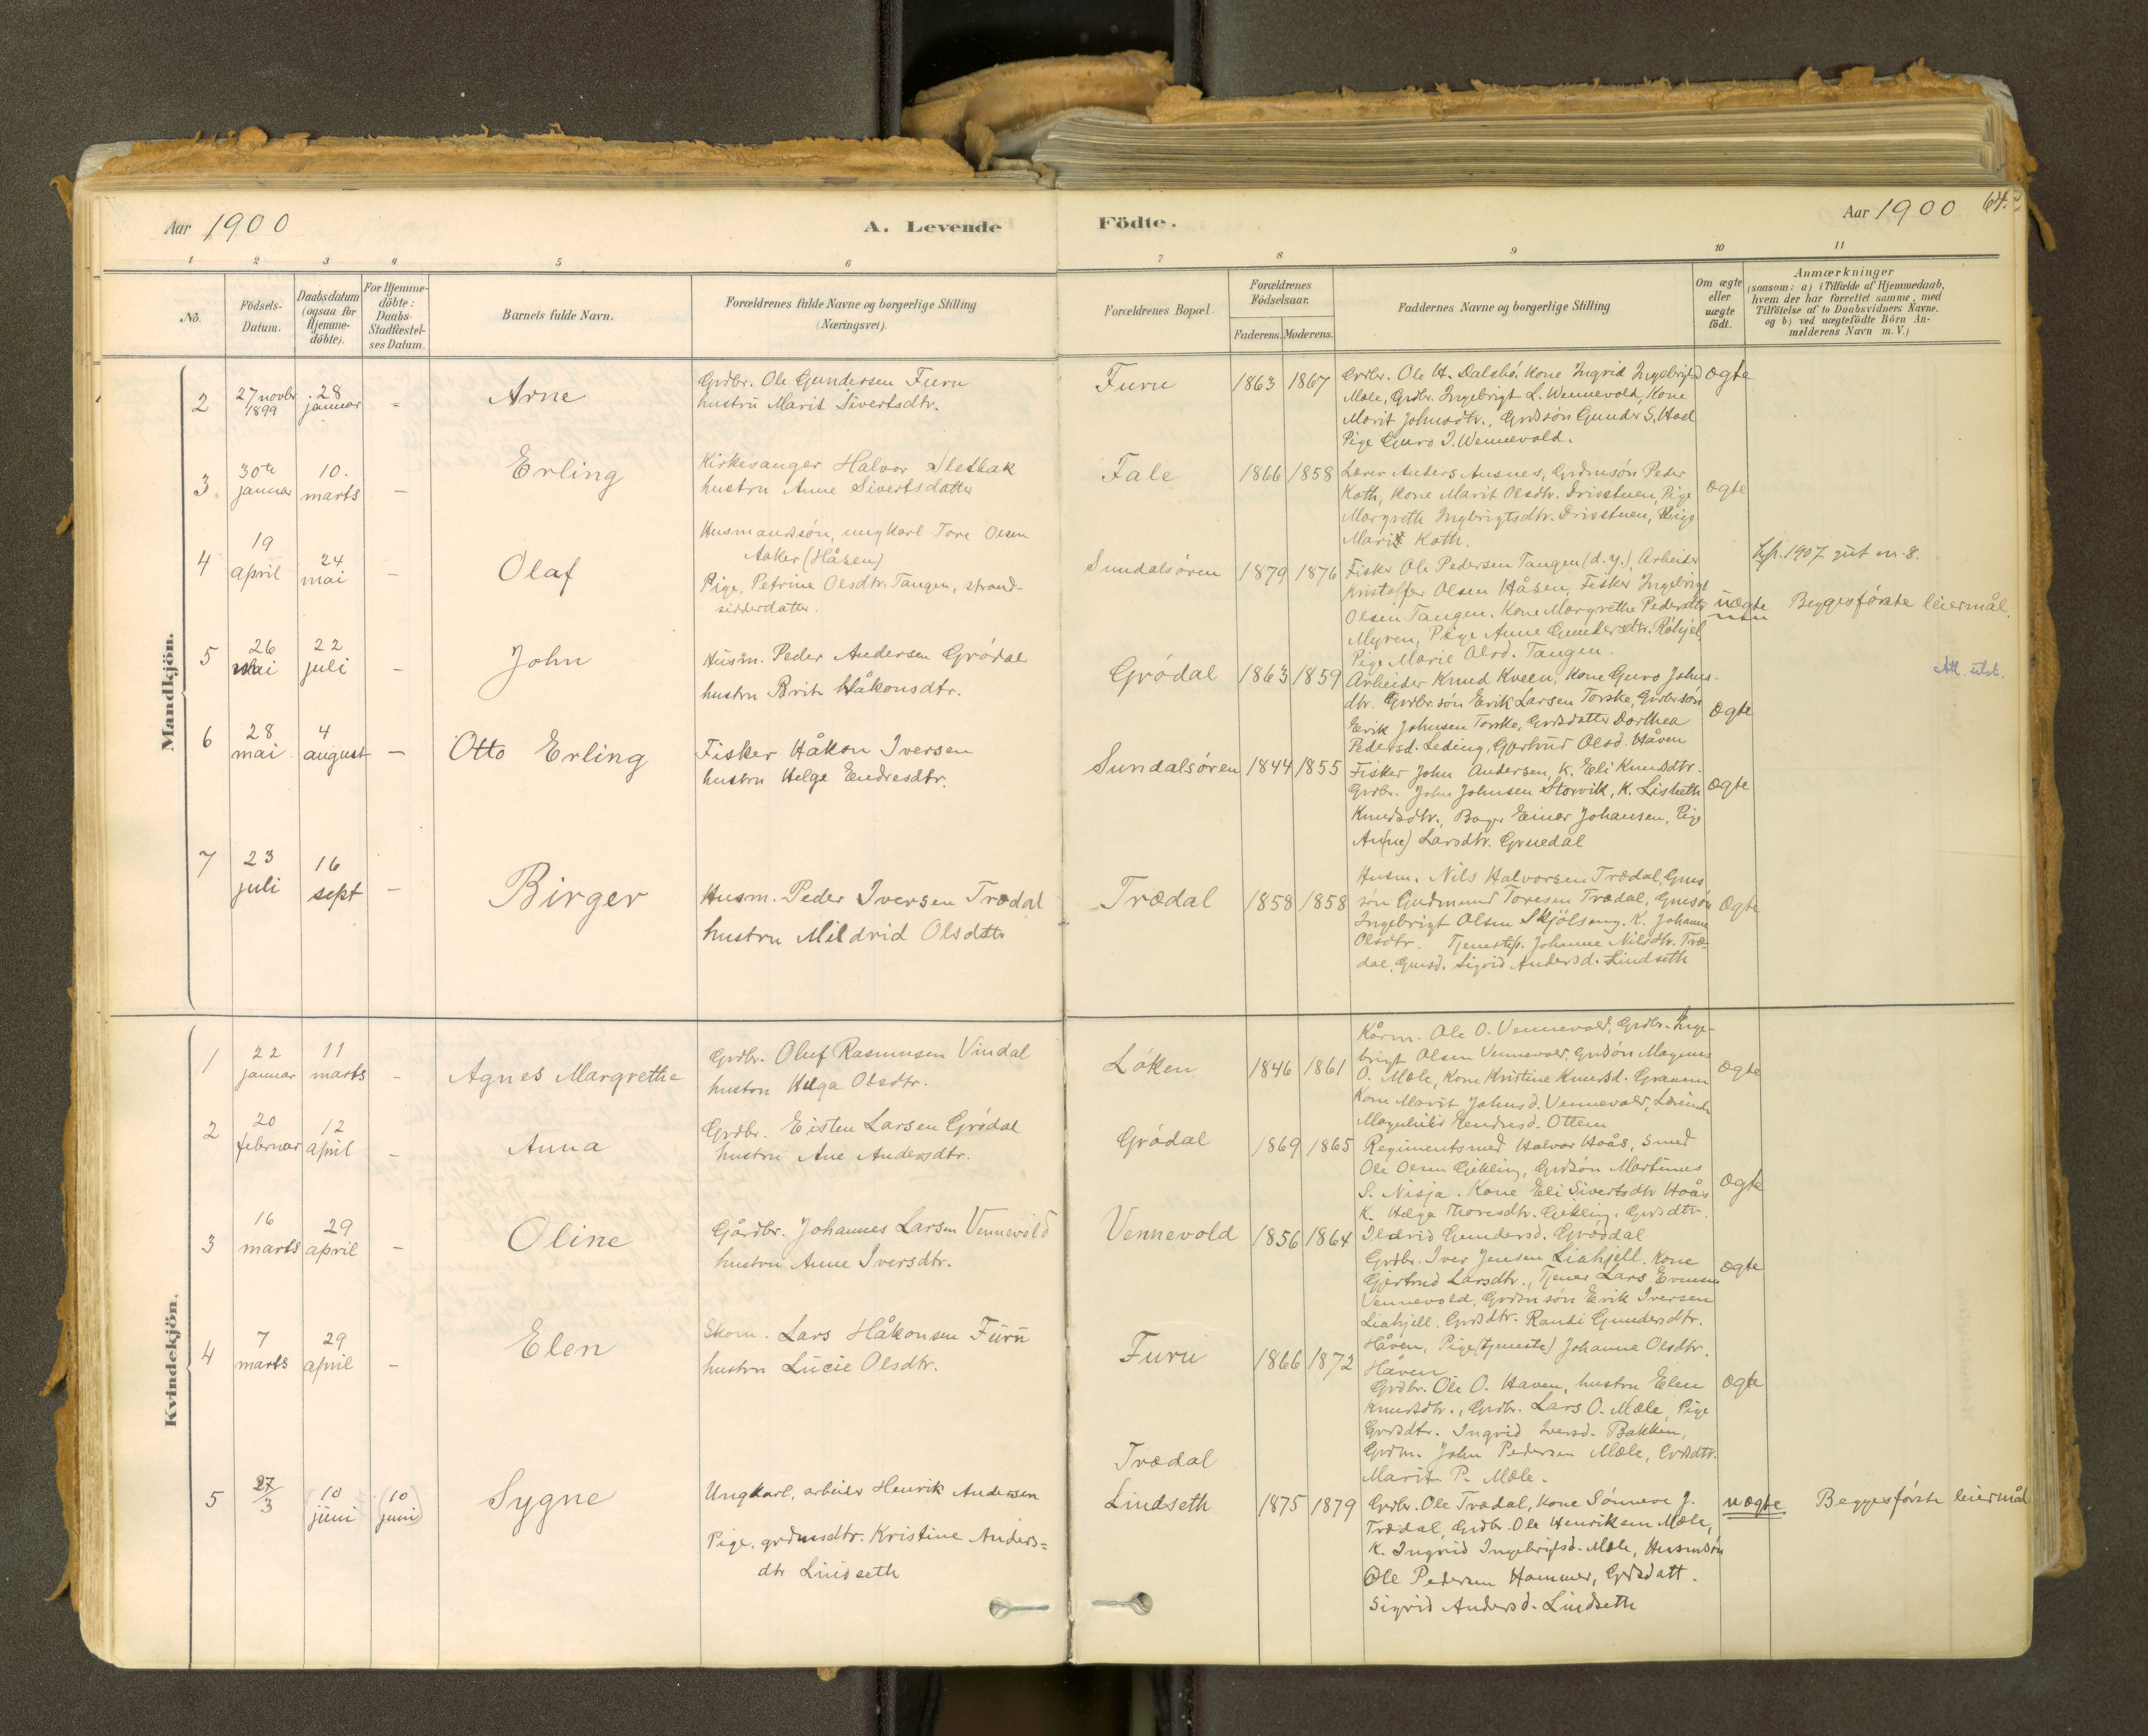 Aar 1900
A. Levende
Födte.
Aar 1900
64.
1 2 3 4 5 6 7 8 9 10 11
No.
Födsels-
Datum.
Daabsdatum
(ogsaa for
Hjemme-
döbte).
For Hjemme-
döbte:
Daabs-
Stadfæstel-
ses Datum.
Barnets fulde Navn.
Forældrenes fulde Navne og borgerlige Stilling
(Næringsvei)
Forældrenes Bopæl.
Forældrenes
Födselsaar.
Faderens. Moderens.
Faddernes Navne og borgerlige Stilling
Om ægte
eller
uægte
födt.
Anmærkninger
(saasom: a) i Tilfælde af Hjemmedaab,
hvem der har forrettet samme, med
Tilföielse af to Daabsvidners Navne.
og b) ved uægtefödte Börn An-
melderens Navn m. V.)
Mandkjön.
2
27 novbr
1899
28
januar
-
Arne
Grdbr. Ole Gundersen Furu
hustru Marit Sivertsdtr.
Furu
1863 1867
Grdbr. Ole H. Dalsbó kone Ingrid Ingebrigtsd
Mæle, Grdbr. Ingebrigt L. Wennevold, Kone
Marit Johnsdtr., Grdsón Gunder S. Hoel
Pige Guro I. Wennevold.
ægte
3.
30te
januar
10.
marts
-
Erling
Kirkesanger Halvor Sletbak
hustru Anne Sivertsdatter
Fale
1866 1858
Lærer Anders Ausnes, Grdmsón Peder
Koth, kone Marit Olsdtr. Driostuen, Pige
Margreth Ingbrigtsdtr. Driostuen, Pige
Marit Koth.
ægte
4
19
april
24
mai
-
Olaf
Husmandssón, ungkarl Tore Olsen
Aaker (Håsen)
Pige, Petrine Olsdtr. Tangen, strand-
sidderdatter.
Sundalsóren
1879 1876
Fisker Ole Pedersen Tangen (d.y.), Arbeider
Kristoffer Olsen Håsen, Fisker Ingebrigt
Olsen Tangen. Kone Margrethe Pedersdtr
Myren, Pige Anne Gundersdtr.
Pige Marie Olsd. Tangen.
uægte
1907
Begges fórste leiermål.
5
26
mai
22
juli
-
John
Husm. Peder Andersen Gródal
hustru Brit Håkonsdtr.
Gródal
1863 1859
Arbeider Knud Kveen, kone Guro Johns-
dtr. Grdbr.són Erik Larsen Torske, Grdbrsón
Erik Johnsen Torske, Grdsdatter Dorthea
Pedersd. Leding, Gjertrud Olsd. Håven
ægte
6
28
mai
4
august
-
Otto Erling
Fisker Håkon Iversen
hustru Helge Endresdtr.
Sundalsóren
1844 1855
Fisker John Andersen, K. Eli Knudsdtr.
Grdbr. John Johnsen Storvik, K. Lisbeth
Knudsdtr., Bager Einar Johansen, Pige
An(ne) Larsdtr. Gruedal
ægte
7
23
juli
16
sept
-
Birger
Husm. Peder Iversen Trædal
hustru Mildrid Olsdatter
Trædal
1858 1858
Husm. Nils Halvorsen Trædal, Gms
són Gudmund Toresen Trædal, Gmsón
Ingebrigt Olsen Skjólseng. K. Johanne
Olsdtr. Tjenestep. Johanne Nilsdtr. Træ-
dal, Gmsd. Sigrid Andersd. Lindseth
ægte
Kvindekjön.
1
22
januar
11
marts
-
Agnes Margrethe
Grdbr. Oluf Rasmusen Vindal
hustru Helga Olsdtr.
Lóken
1846 1861
Kårm. Ole O. Vennevold, Grdbr. Inge-
brigt Olsen Vennevold, Grdsón Magnus
O. Mæle, Kone Kristine Knudsd. Grauem
Kone Marit Johnsd. Vennevold, Lærerinde
Magnhild Endresd. Ottem
ægte
2
20
februar
12
april
-
Anna
Grdbr. Eisten Larsen Gródal
hustru Ane Andersdtr.
Gródal
1869 1865
Regimentsmed Halvor Hoås, Smed
Ole Olsen Gikling, Grdsón Martinus
S. Nisja. Kone Eli Sivertsdtr Hoås
K. Helga Thoresdtr. Gikling, Grdsdtr.
Ildrid Gundersd. Gróddal
ægte
3
16
marts
29
april
-
Oline
Gårdbr. Johannes Larsen Vennevold
hustru Anne Iversdtr.
Vennevold
1856 1864
Grdbr. Iver Jensen Liahjell. Kone
Gjertrud Larsdtr., Tjener Lars Evensen
Vennevold, Grdmsón Erik Iversen
Liahjell. Grdsdtr. Randi Gundersdtr.
Håven, Pige (tjeneste) Johanna Olsdtr.
Håven
ægte
4
7
marts
29
april
-
Elen
Skom. Lars Håkonsen Furu
hustru Lucie Olsdtr.
Furu
1866 1872
Grdbr. Ole O. Haven, hustru Elen
Knudsdtr., Grdbr. Lars O. Mæle, Pige
Grdsdtr. Ingrid Iversd. Bakken,
Grdm. John Pedersen Mæle, Grdsdtr.
Marit P. Mæle.
ægte
5
27
3
10
juni
(10
juni)
Sygne
Ungkarl, arbeider Henrik Andersen
Pige, grdmsdtr. Kristine Anders=
dtr Lindseth
Trædal
Lindseth
1875 1879
Grdbr. Ole Trædal, Kone Sónneve J.
Trædal, Grdbr. Ole Henriksen Mæle,
K. Ingrid Ingebrigtsd. Mæle, Husmsón
Ole Pedersen Hammer, Grdsdatt.
Sigrid Andersd. Lindseth
uægte
Begges fórste leiermål